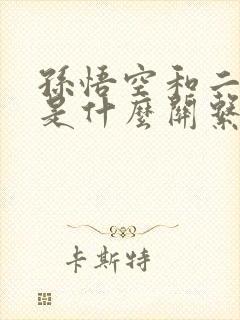 孫悟空和二
是什麼關繫
卡斯特